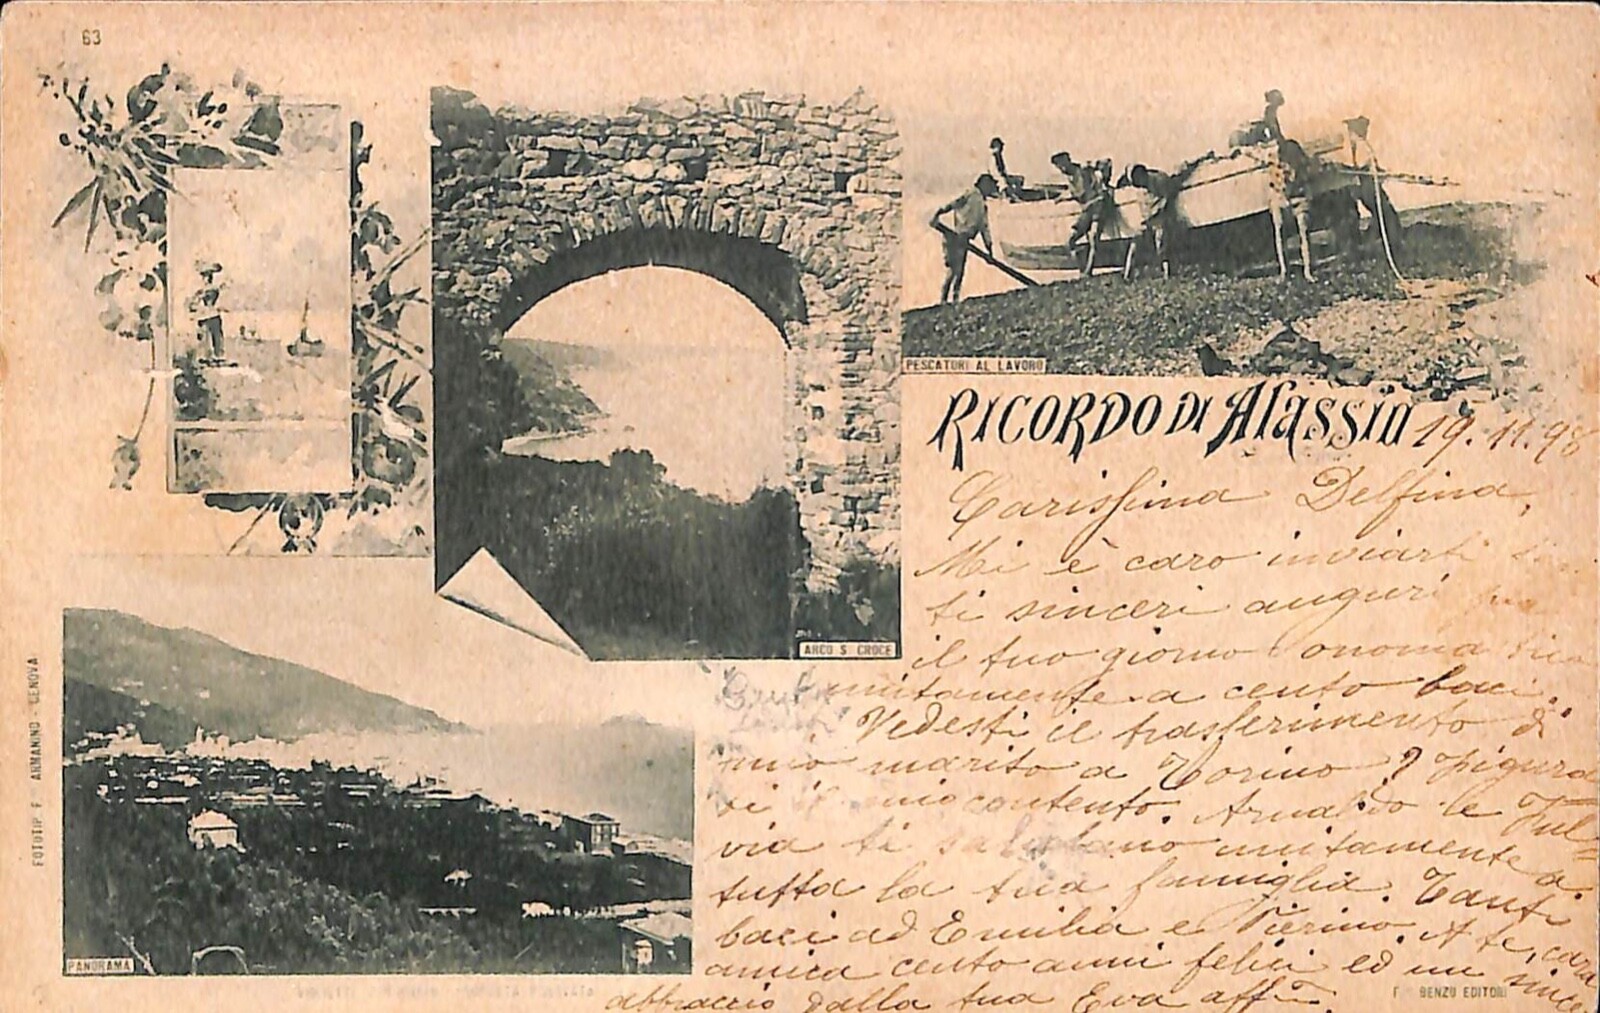 63
PESCATORI AL LAVORO
RICORDO DI Alassio 19.11.98
Carissima Delfina,
Mi è caro inviarti
ti sinceri auguri
il tuo giorno onoma
unitamente a cento baci.
Vedesti il trasferimento di
mio marito a Torino? Figura
ti il mio contento. Arnaldo e Ful=
via ti salutano unitamente a
tutta la tua famiglia. Tanti
baci ad Emilia e Pierino. A te, cara
amica cento anni felici ed un since
abbraccio dalla tua Eva aff.
ARCO S CROCE
PANORAMA
FOTOTIP. F. ARMANINO - GENOVA
F. BENZO EDITORE